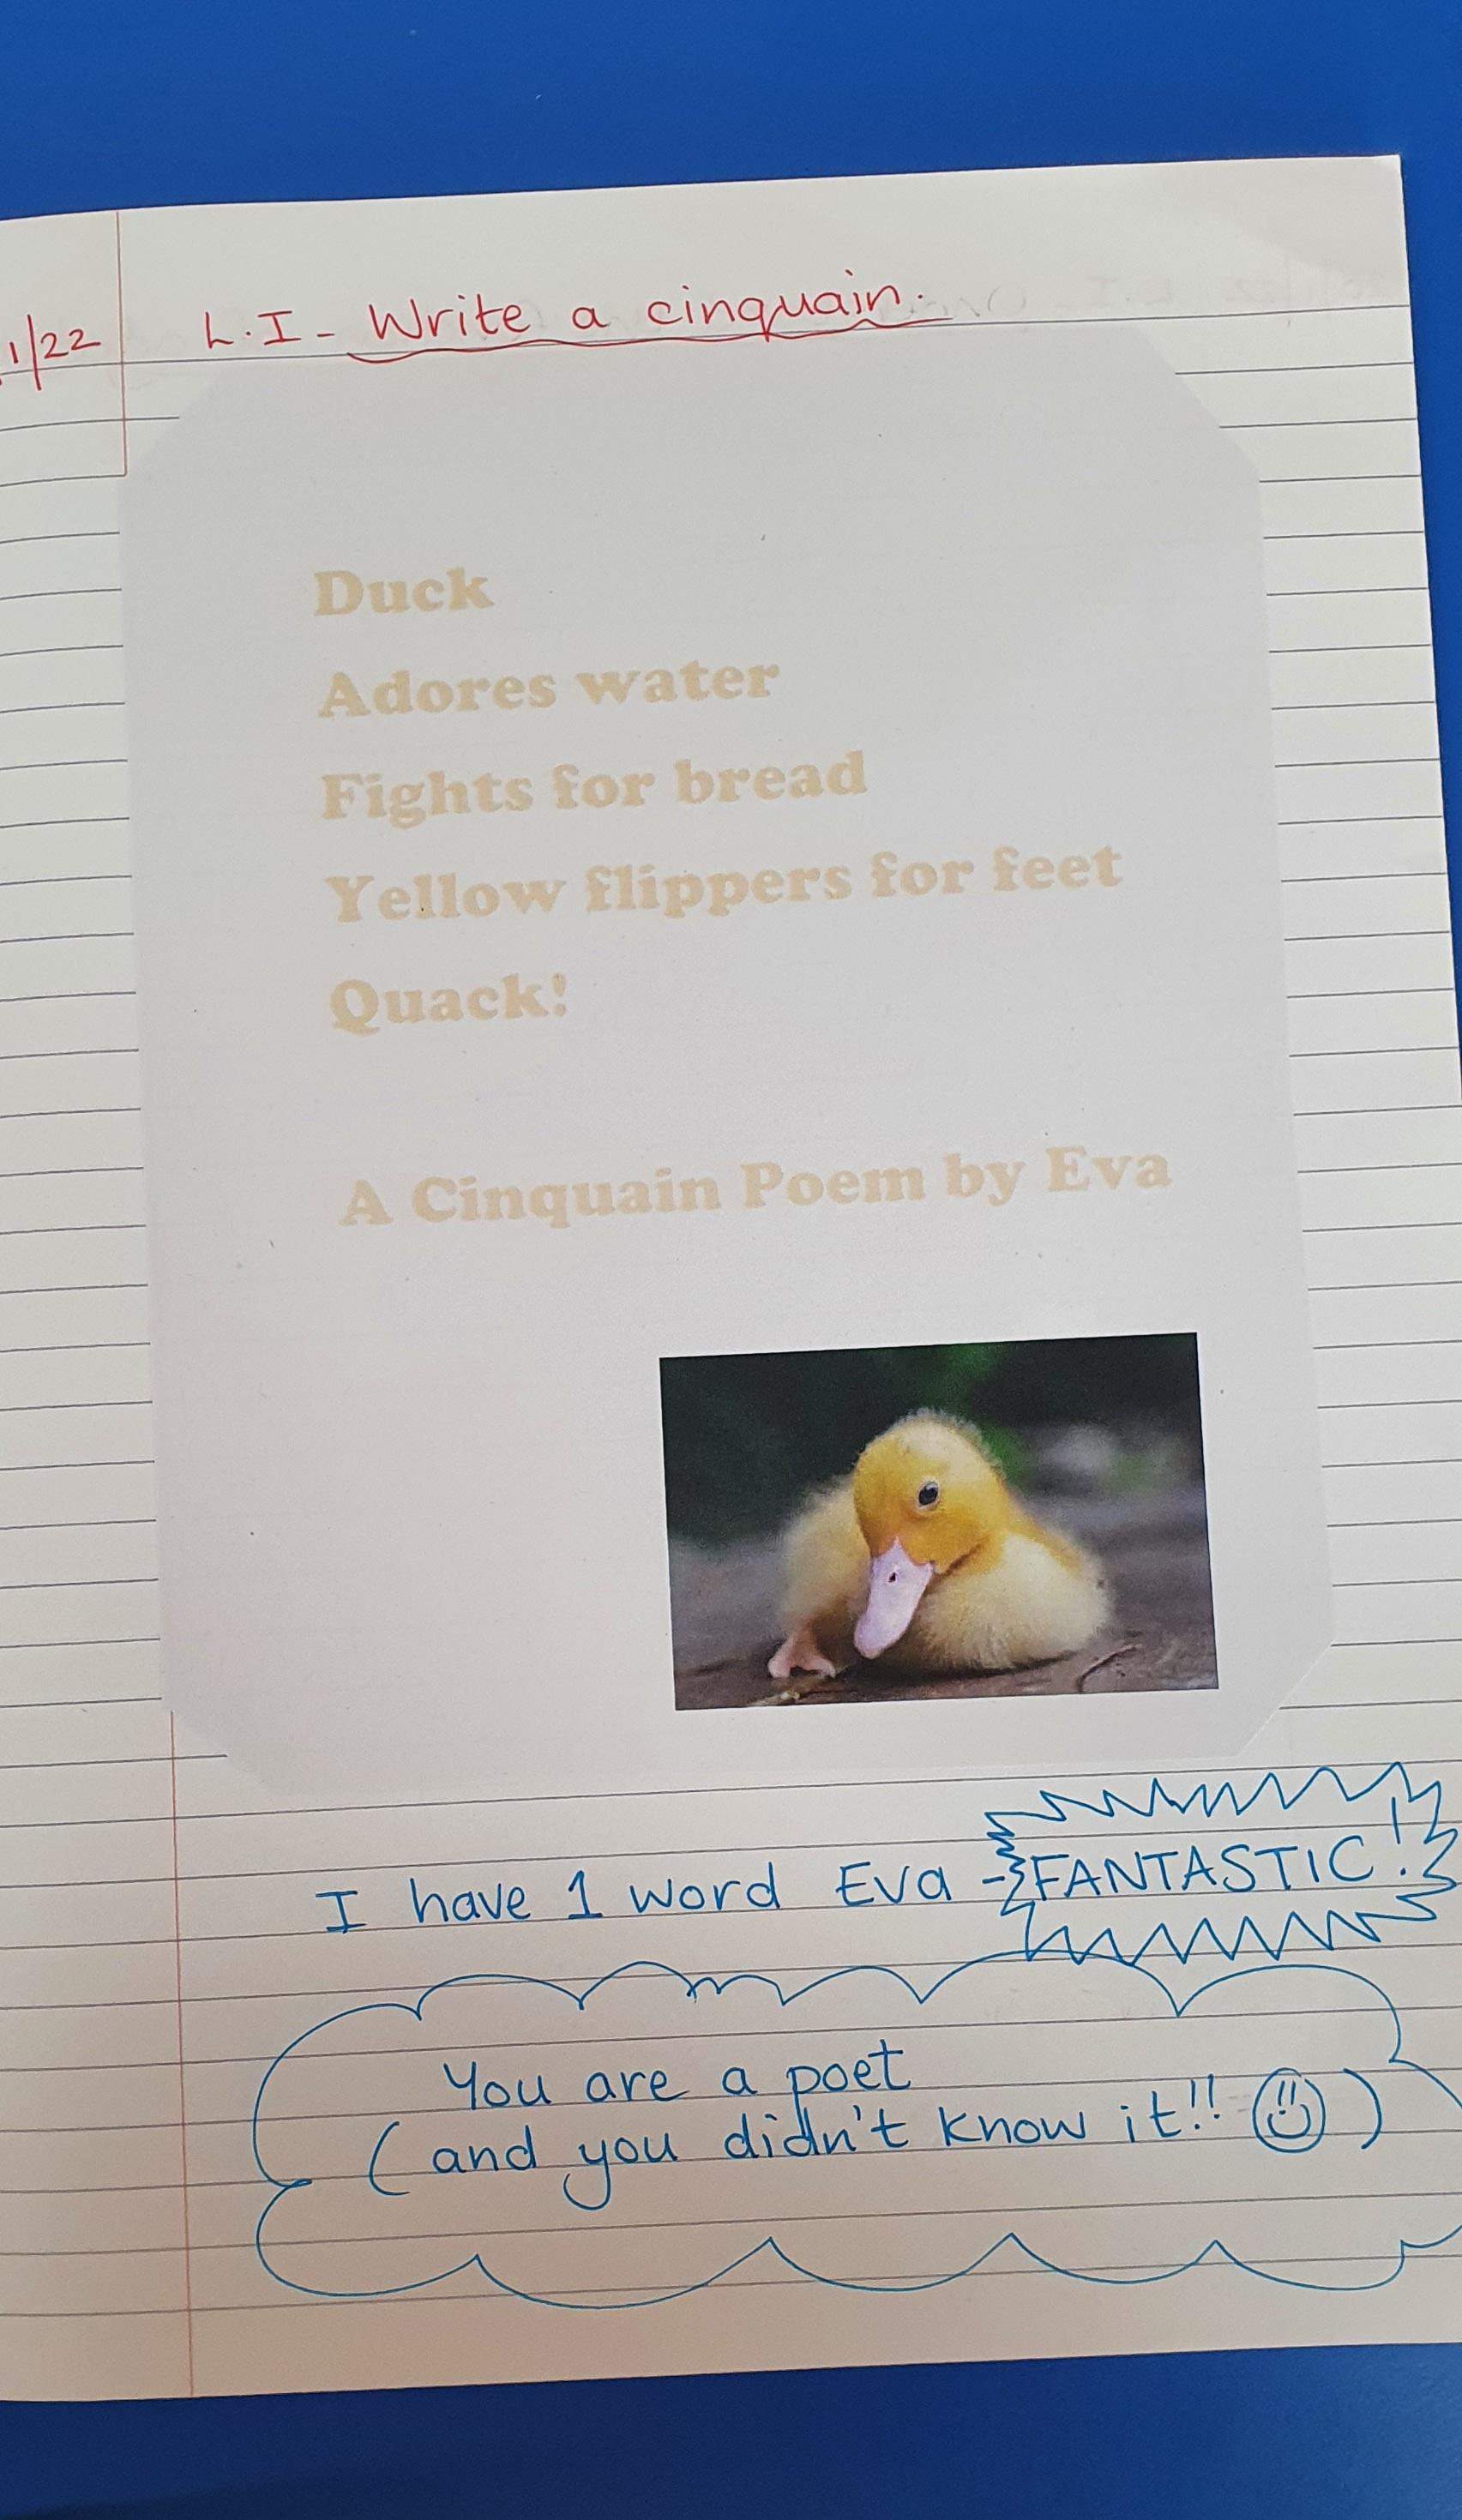 1/22 L.I - Write a cinquain.
Duck
Adores water
Fights for bread
Yellow flippers for feet
Quack!
A Cinquain Poem by Eva
I have 1 word Eva - FANTASTIC!
You are a poet
(and you didn't know it!! )